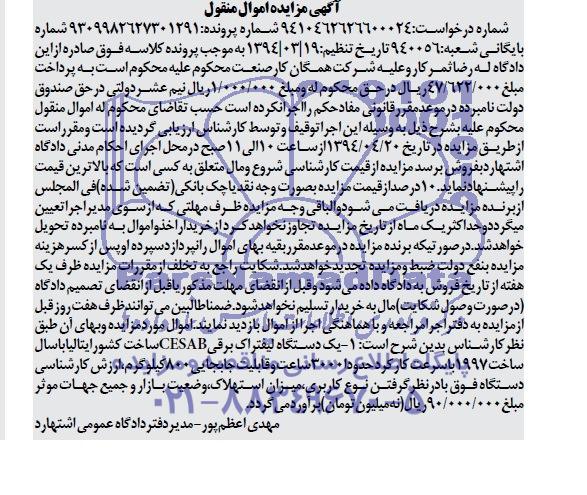 آگهی مزایده اموال منقول
شماره درخواست:۹۴۱۰۴۶۲۶۲۶۶۰۰۰۲۴ شماره پرونده:۹۳۰۹۹۸۲۶۲۷۳۰۱۲۹۱ شماره
بایگانی شعبه:۹۴۰۰۵۶ تاریخ تنظیم:۱۳۹۴/۰۳/۱۹ به موجب پرونده کلاسه فوق صادره از این
دادگاه له رضا ثمر کار و علیه شرکت همگان کار صنعت محکوم علیه محکوم است به پرداخت
مبلغ ۴۷/۶۲۲/۰۰۰ریال در حق محکوم له و مبلغ ۱/۰۰۰/۰۰۰ریال نیم عشر دولتی در حق صندوق
دولت نامبرده در موعد مقرر قانونی مفاد حکم را اجرا نکرده است حسب تقاضای محکوم له اموال منقول
محکوم علیه بشرح ذیل به وسیله این اجرا توقیف و توسط کارشناس ارزیابی گردیده است و مقرر است
از طریق مزایده در تاریخ ۱۳۹۴/۰۴/۲۰ از ساعت ۱۰ الی ۱۱ صبح در محل اجرای احکام مدنی دادگاه
اشتهارد بفروش برسد مزایده از قیمت کارشناسی شروع و مال متعلق به کسی است که بالاترین قیمت
را پیشنهاد نماید. ۱۰ درصد از قیمت مزایده بصورت وجه نقد یا چک بانکی (تضمین شده) فی المجلس
از برنده مزایده دریافت می شود و الباقی وجه مزایده ظرف مهلتی که از سوی مدیر اجرا تعیین
میگردد و حداکثر یک ماه از تاریخ مزایده تجاوز نخواهد کرد از خریدار اخذ و اموال به نامبرده تحویل
خواهد شد. در صورتیکه برنده مزایده در موعد مقرر بقیه بهای اموال را نپردازد سپرده او پس از کسر هزینه
مزایده بنفع دولت ضبط و مزایده تجدید خواهد شد. شکایت راجع به تخلف از مقررات مزایده ظرف یک
هفته از تاریخ فروش به دادگاه داده می شود و قبل از انقضای مهلت مذکور یا قبل از انقضای تصمیم دادگاه
(در صورت وصول شکایت) مال به خریدار تسلیم نخواهد شود. ضمنا طالبین می توانند ظرف هفت روز قبل
از مزایده به دفتر اجرا مراجعه و با هماهنگی اجرا از اموال بازدید نمایند. اموال مورد مزایده و بهای آن طبق
نظر کارشناس بدین شرح است: ۱-یک دستگاه لیفتراک برقی CESAB ساخت کشور ایتالیا با سال
ساخت ۱۹۹۷ با سرعت کارکرد حدودا ۳۰۰۰ ساعت و قابلیت جابجایی ۸۰۰ کیلوگرم، ارزش کارشناسی
دستگاه فوق با در نظر گرفتن نوع کاربری، میزان استهلاک، وضعیت بازار و جمیع جهات موثر
مبلغ ۹۰/۰۰۰/۰۰۰ ریال (نه میلیون تومان) برآورد می گردد
مهدی اعظم پور-مدیر دفتر دادگاه عمومی اشتهارد
ParsNamadData
پایگاه اطلاع رسانی مناقصه و مزایده
۰۲۱-۸۸۳۴۹۶۷۰-۵